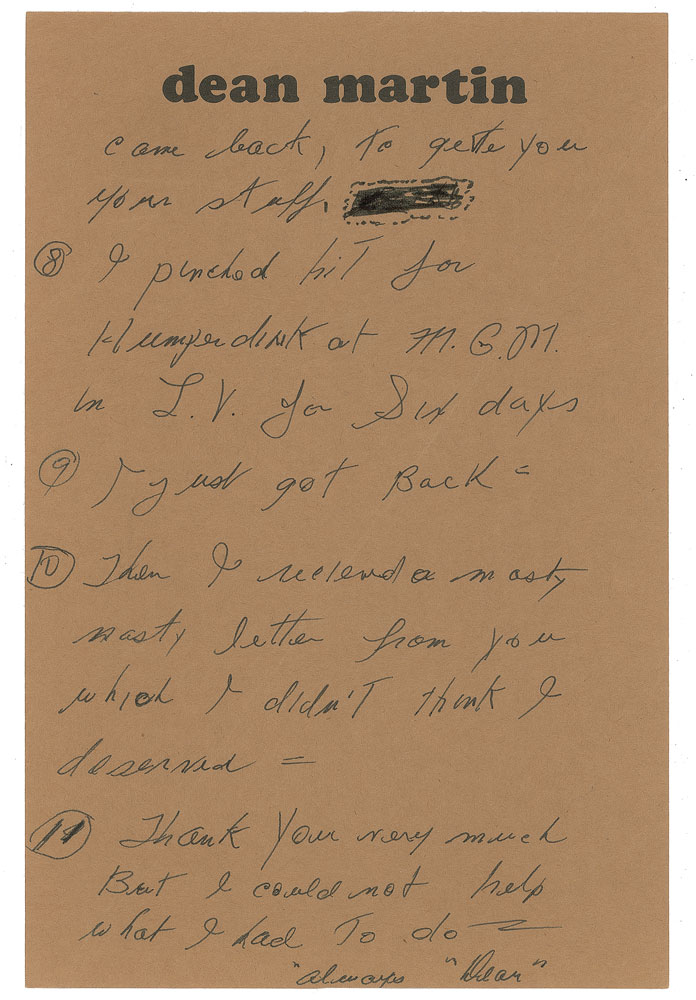 dean martin
came back, To gette you
your stuff.
⑧ I pinched hiT for
Humperdink at M.G.M.
in L.V. for Six days
⑨ I just got Back =
⑩ Then I recieved a nasty
nasty letter from you
which I didn'T Think I
deserved =
⑪ Thank Your very much
But I could not help
what I had To do
"always "Dean"